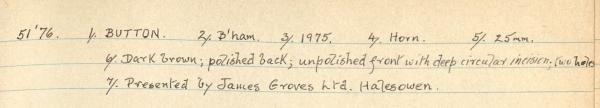 51'76. 1/. BUTTON. 2/. B'ham. 3/. 1975. 4/. Horn. 5/. 25mm.
6/. Dark brown; polished back; unpolished front with deep circular incision, two holes
7/. Presented by James Groves Ltd. Halesowen.